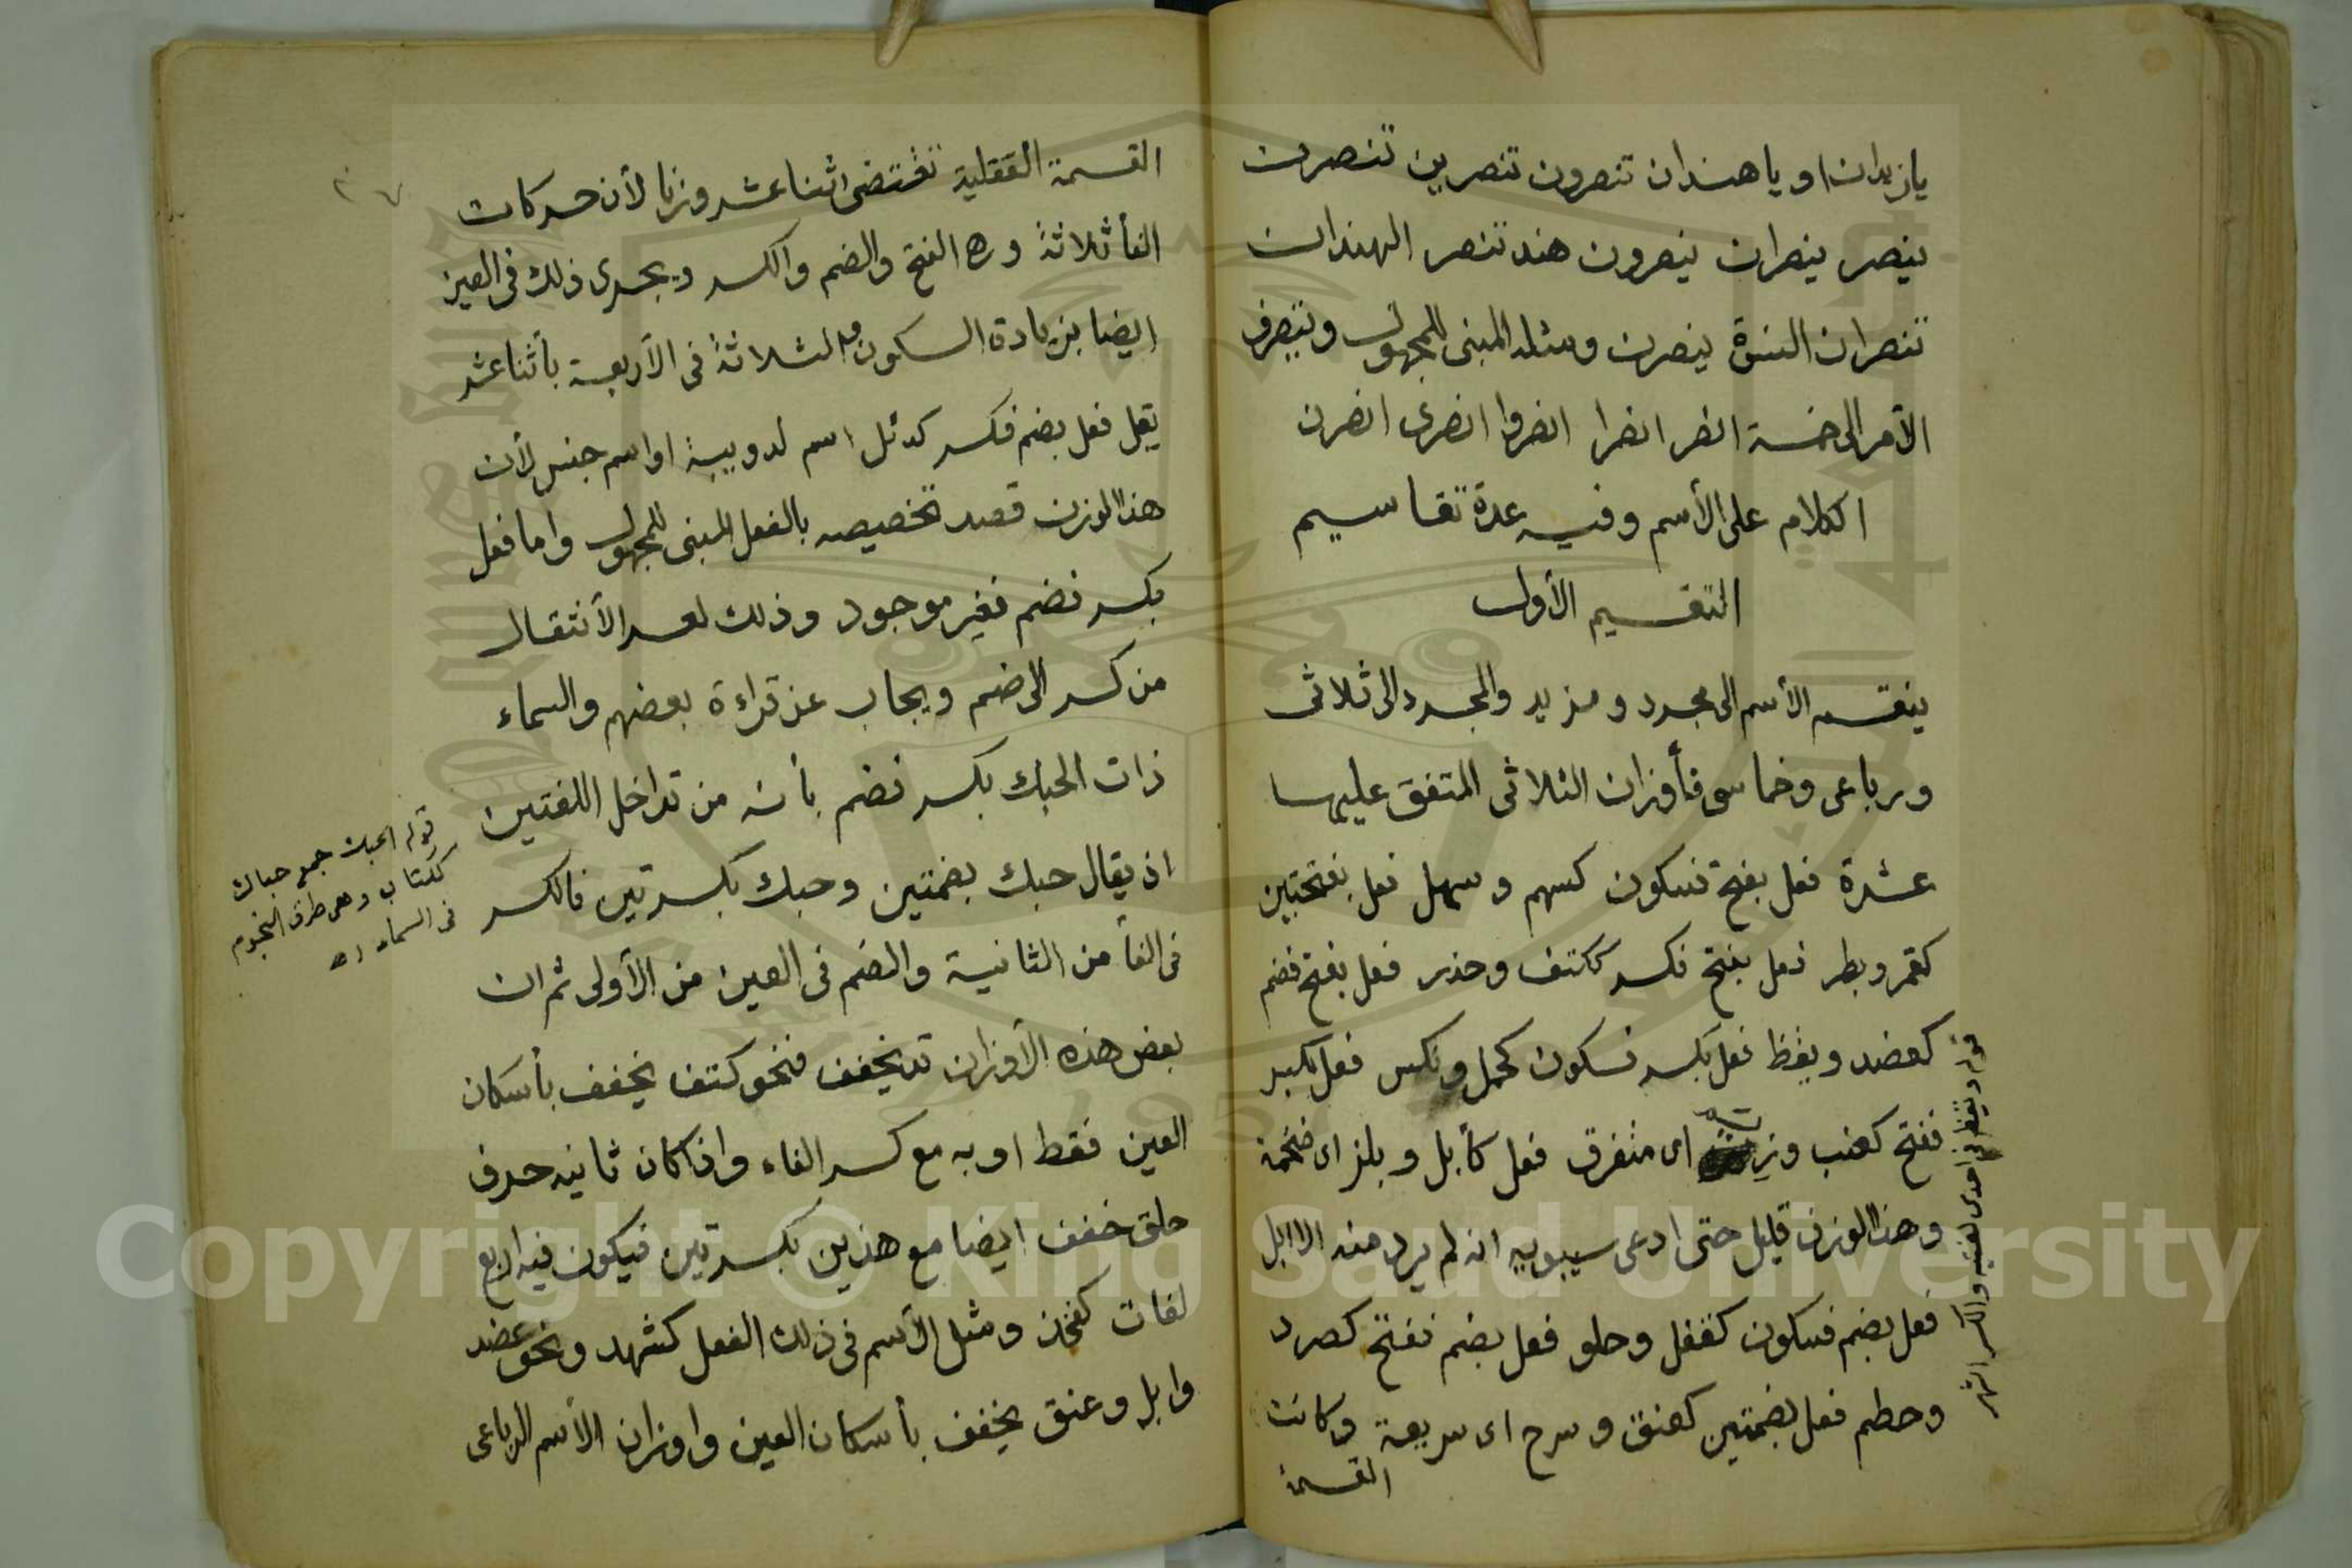 يازيدان او يا هندان تنصرون تنصرين تنصرن
ينصر ينصران ينصرون هند تنصر الهندان
تنصران النسوة ينصرن ومثله المبنى للمجهول ويتصرف
الأمر الى خمسة انصر انصرا انصروا انصرى انصرن
الكلام على الأسم وفيه عدة تقاسيم
التقسيم الأول
ينقسم الأسم الى مجرد ومزيد والمجرد الى ثلاثى
ورباعى وخماسى فأوزان الثلاثى المتفق عليها
عشرة فعل بفتح فسكون كسهم وسهل فعل بفتحتين
كقمر وبطر فعل بفتح فكسر ككتف وحذر فعل بفتح فضم
كعضد ويقظ فعل بكسر فسكون كحمل ونكس فعل بكسر
ففتح كعنب وزيم اى متفرق فعل كأبل وبلز اى ضخمة
وهذا الوزن قليل حتى ادعى سيبويه انه لم يرد منه الا ابل
فعل بضم فسكون كقفل وحلو فعل بضم ففتح كصرد
وحطم فعل بضمتين كعنق وسرح اى سريعة وكانت
القسمة
قوله ويقظ فى احدى لغتيه والكسر اشهر
القسمة العقلية تقتضى اثنا عشر وزنا لأن حركات
الفأ ثلاثة وه الفتح والضم والكسر ويجرى ذلك فى العين
ايضا بزيادة السكون والثلاثة فى الأربعة بأثنا عشر
يقل فعل بضم فكسر كدئل اسم لدويبة او اسم جنس لأن
هذا الوزن قصد تخصيصه بالفعل المبنى للمجهول واما فعل
بكسر فضم فغير موجود وذلك لعسر الأنتقال
من كسر الى ضم ويجاب عن قراءة بعضهم والسماء
ذات الحبك بكسر فضم بأنه من تداخل اللغتين
اذ يقال حبك بضمتين وحبك بكسرتين فالكسر
فى الفأ من الثانية والضم فى العين من الأولى ثم ان
بعض هذه الأوزان قد يخفف فنحو كتف يخفف بأسكان
العين فقط او به مع كسر الفاء واذا كان ثانيه حرف
حلق خفف ايضا مع هذين بكسرتين فيكون فيه اربع
لغات كفخذ ومثل الأسم فى ذلك الفعل كشهد ونحو عضد
وابل وعنق يخفف بأسكان العين واوزان الأسم الرباعى
قوله الحبك جمع حباك
ككتاب وهى طرق النجوم
فى السماء اه
Copyright © King Saud University